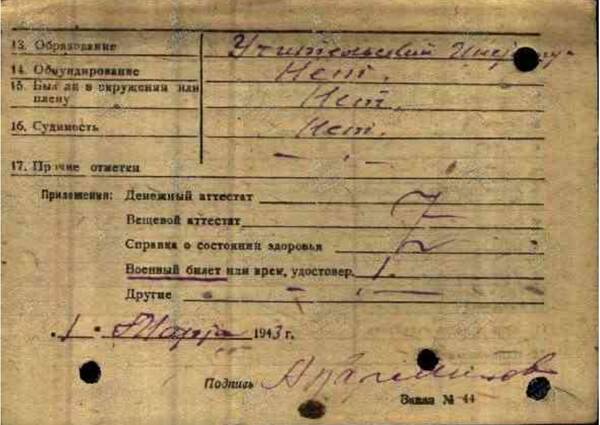 13. Образование Учительский Инст
14. Обмундирование Нет.
15. Был ли в окружении или плену Нет.
16. Судимость Нет.
17. Прочие отметки — , —
Приложения: Денежный аттестат
Вещевой аттестат
Справка о состоянии здоровья
Военный билет или врем. удостовер. 1.
Другие — , —
"1" Марта 1943 г.
Подпись
Заказ № 44